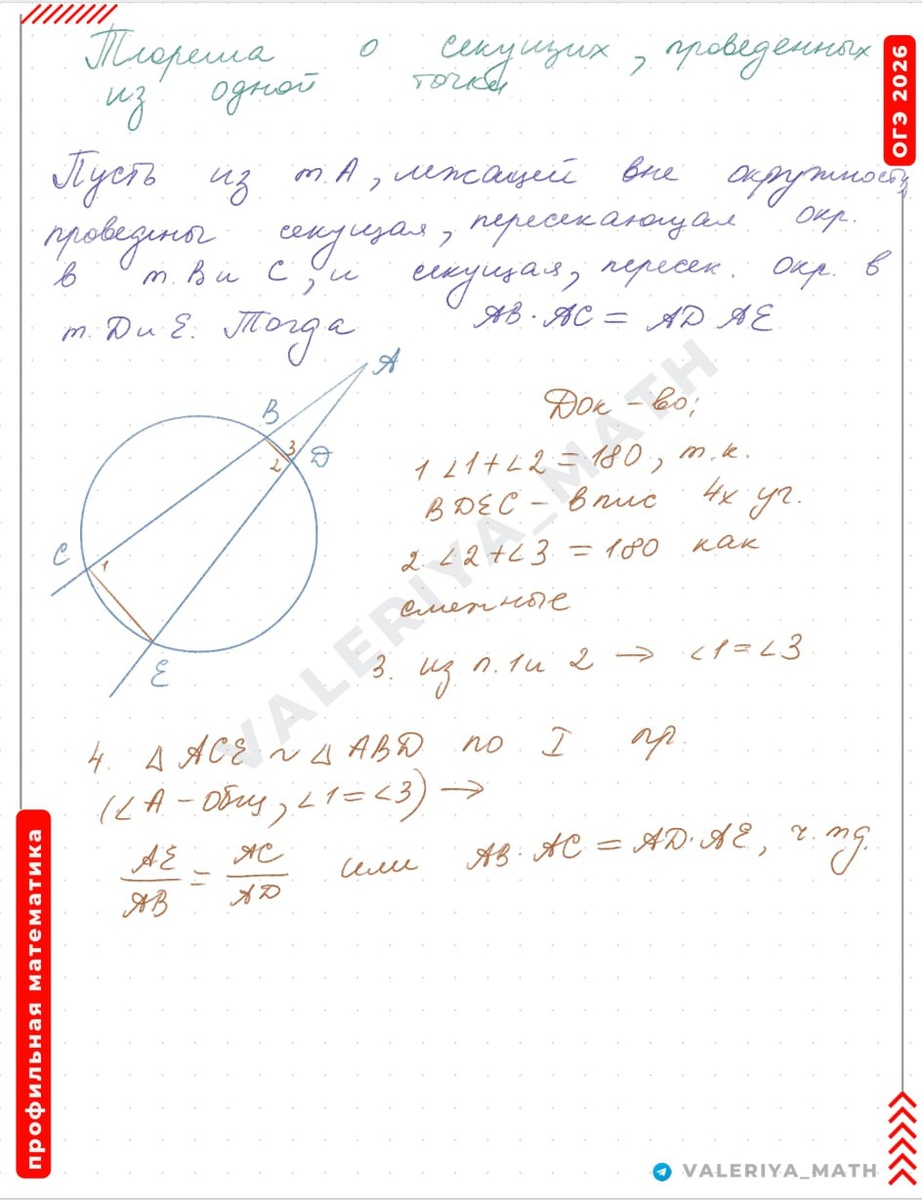 Теорема о секущих, проведенных
из одной точки
ОГЭ 2026
Пусть из т. А, лежащей вне окружности,
проведены секущая, пересекающая окр.
в т. В и С, и секущая, пересек. окр. в
т. D и E. Тогда AB · AC = AD AE
A
B
3
2
D
C
1
E
Док-во:
1 ∠1+∠2 = 180, т.к.
BDEC – впис 4х уг.
2. ∠2+∠3 = 180 как
смежные
3. из п. 1 и 2 → ∠1=∠3
4. △ ACE ~ △ ABD по I пр.
(∠A – общ, ∠1=∠3) →
AE/AB = AC/AD или AB · AC = AD · AE, ч. тд.
VALERIYA_MATH
профильная математика
VALERIYA_MATH